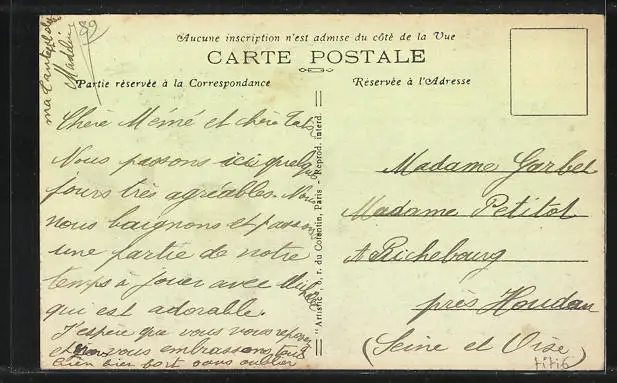 Aucune inscription n'est admise du côté de la Vue
CARTE POSTALE
Partie réservée à la Correspondance
Réservée à l'Adresse
89
Chère Mémé et chère Tata
Nous passons ici quelques
jours très agréables. Nous
nous baignons et passons
une partie de notre
temps à jouer avec
qui est adorable.
J'espère que vous vous reposez
et vous embrassons tous
bien bien fort sans oublier
ma
Madeleine
"Artistic", 8, r. du Cotentin, Paris - Reprod. interd.
Madame Garbet
Madame Petitot
A Richebourg
près Houdan
(Seine et Oise)